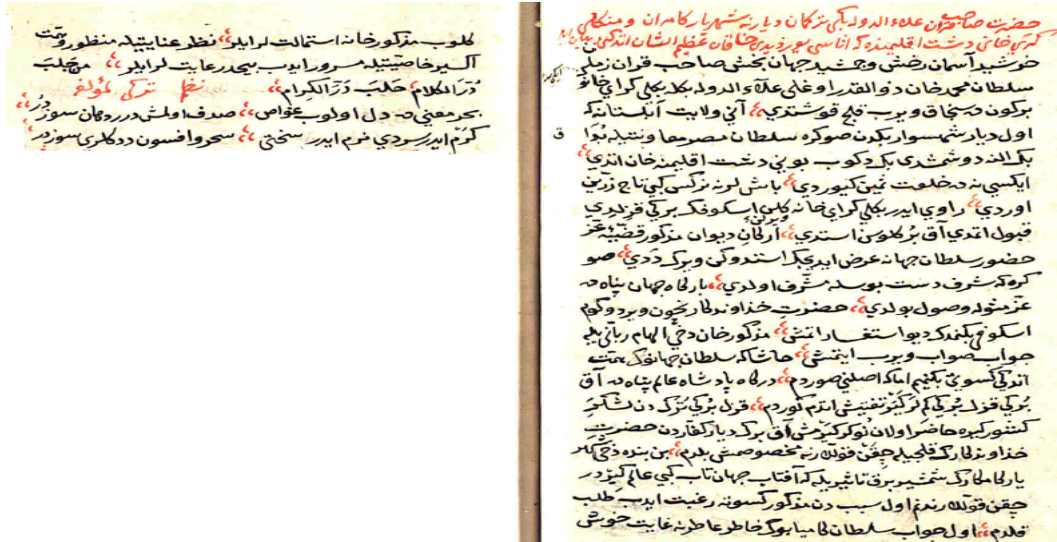 حضرت صاحب قران علاء الدوله بكی تركمان ديارينه شهريار كامران و منكلی
كرای خانی دشت اقليمنده كه اتاسی يورديدر خاقان عظيم الشان اندكی
خورشيد آسمان رخش و جمشيد جهان بخش صاحب قران زمان
سلطان محمد خان ذو القدر اوغلی علاء الدوله بكله منكلی كرای خانه
بر كون ده سنجاق ويروب قلج قوشتدی آنی ولايت ابلستانه كه
اول ديار شهسوار بكدن صوكره سلطان مصر معاونتيله بوداق
بك النه دوشمشدی بك دكوب بونی دشت اقليمنه خان اندی
ايكسی نه ده خلعت ثمين كيوردی باش لرنه نركس كبی تاج زرين
اوردی راوی ايدر منكلی كرای خانه كلن اسكوفك بركی قزلدی
قبول اتمدی آق برك لوسن استدی اركان ديوان مذكور قضيه عز
حضور سلطان جهانه عرض ايدجك استدوكی ويرك ددی صو
كره كه شرف دست بوسله مشرف اولدی باركاه جهان پناه ده
عز مثوله وصول بولدی حضرت خداوندكار نچون ويردوكم
اسكوفی بكنمدك ديو استفسار اتمش مذكور خان دخی الهام ربانی يله
جواب صواب ويرب ايتمش حاشا كه سلطان جهانك همت
اندكی كسوتی بكنميم اما كه اصلنی صوردم دركاه پادشاه عالم پناه ده آق
بركی قزل بركی كملر كير تفتيش اتدم كوردم قزل بركی ترك دن لشكر
كشور كيره حاضر اولان نوكر كيرمش آق برك ديار كفاردن حضرت
خداوندكارك قلجيله چقن قوللارنه مخصوصمش بلدم بن بنده دخی كه
يارلكا مكارك شمشير برق تاثيريله كه آفتاب جهان تاب كبی عالم كيردر
چقن قوللارندنم اول سبب دن مذكور كسوته رغبت ايدب طلب
قلدم اول جواب سلطان كامياب وك خاطر عاطرنه غايت خوش
ق
كلوب مذكور خانه استمالت لر ايلر نظر عنايتيله منظور و همت
اكسير خاصيتيله مسرور ايدب بيحد رعايت لر ايلر من جلب
در الكلام حلب در الكرام نظم تركی لمؤلفه
بحر معنی ده دل اولوب غواص صدف اولمش درر دهان سوز در
كرم ايدر سردی نرم ايدر سختی سحر و افسون ددكلری سوزدر